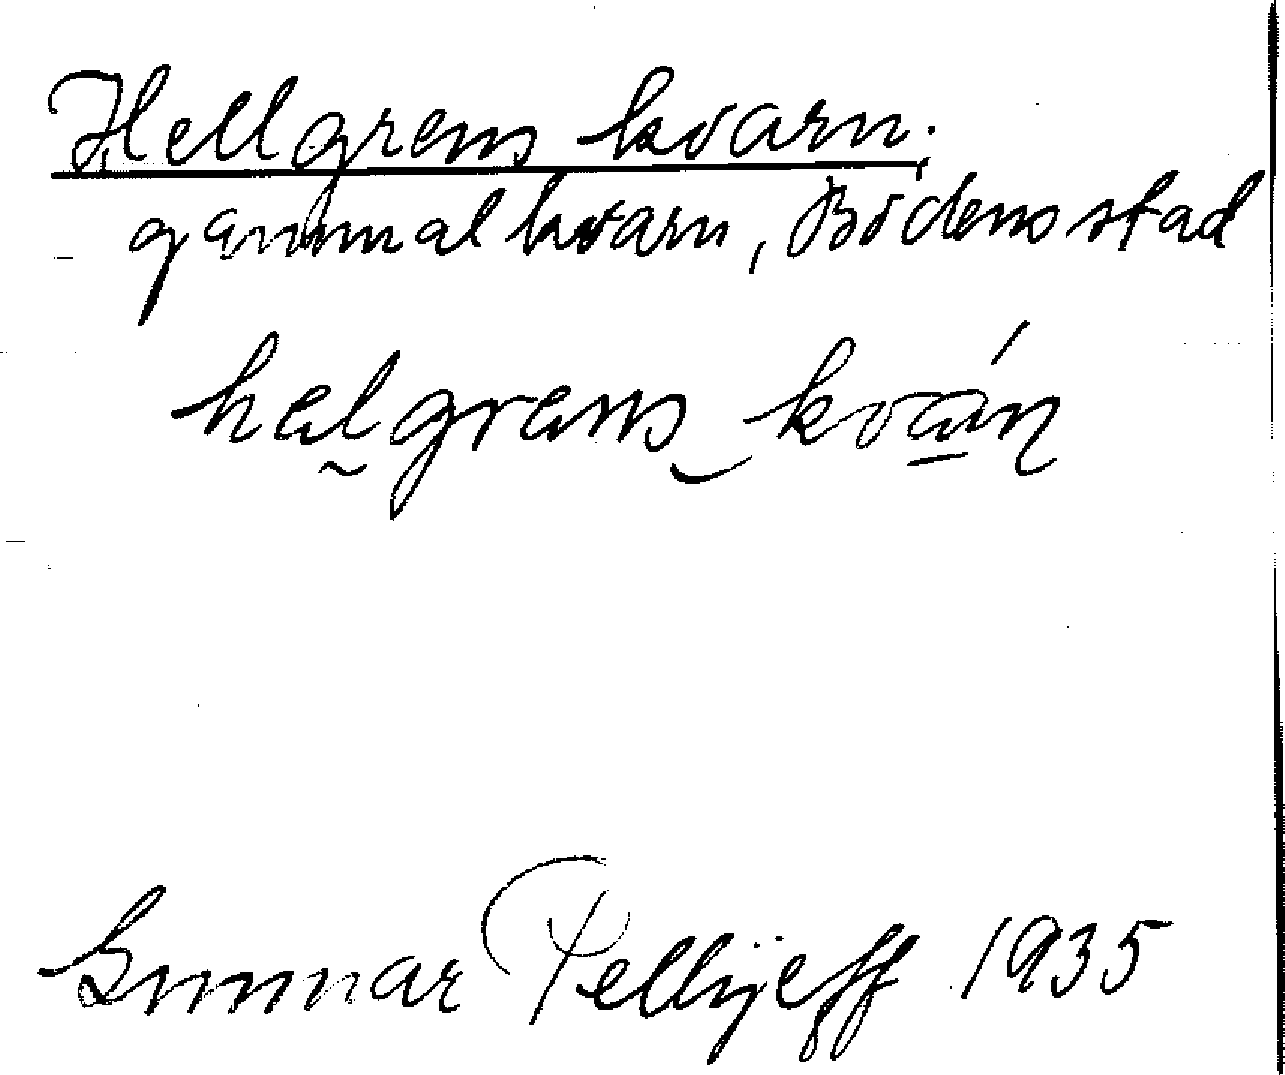 Hellgrens kvarn.
gammal kvarn, Bodens stad
helgrens kván
Gunnar Pellijeff 1935